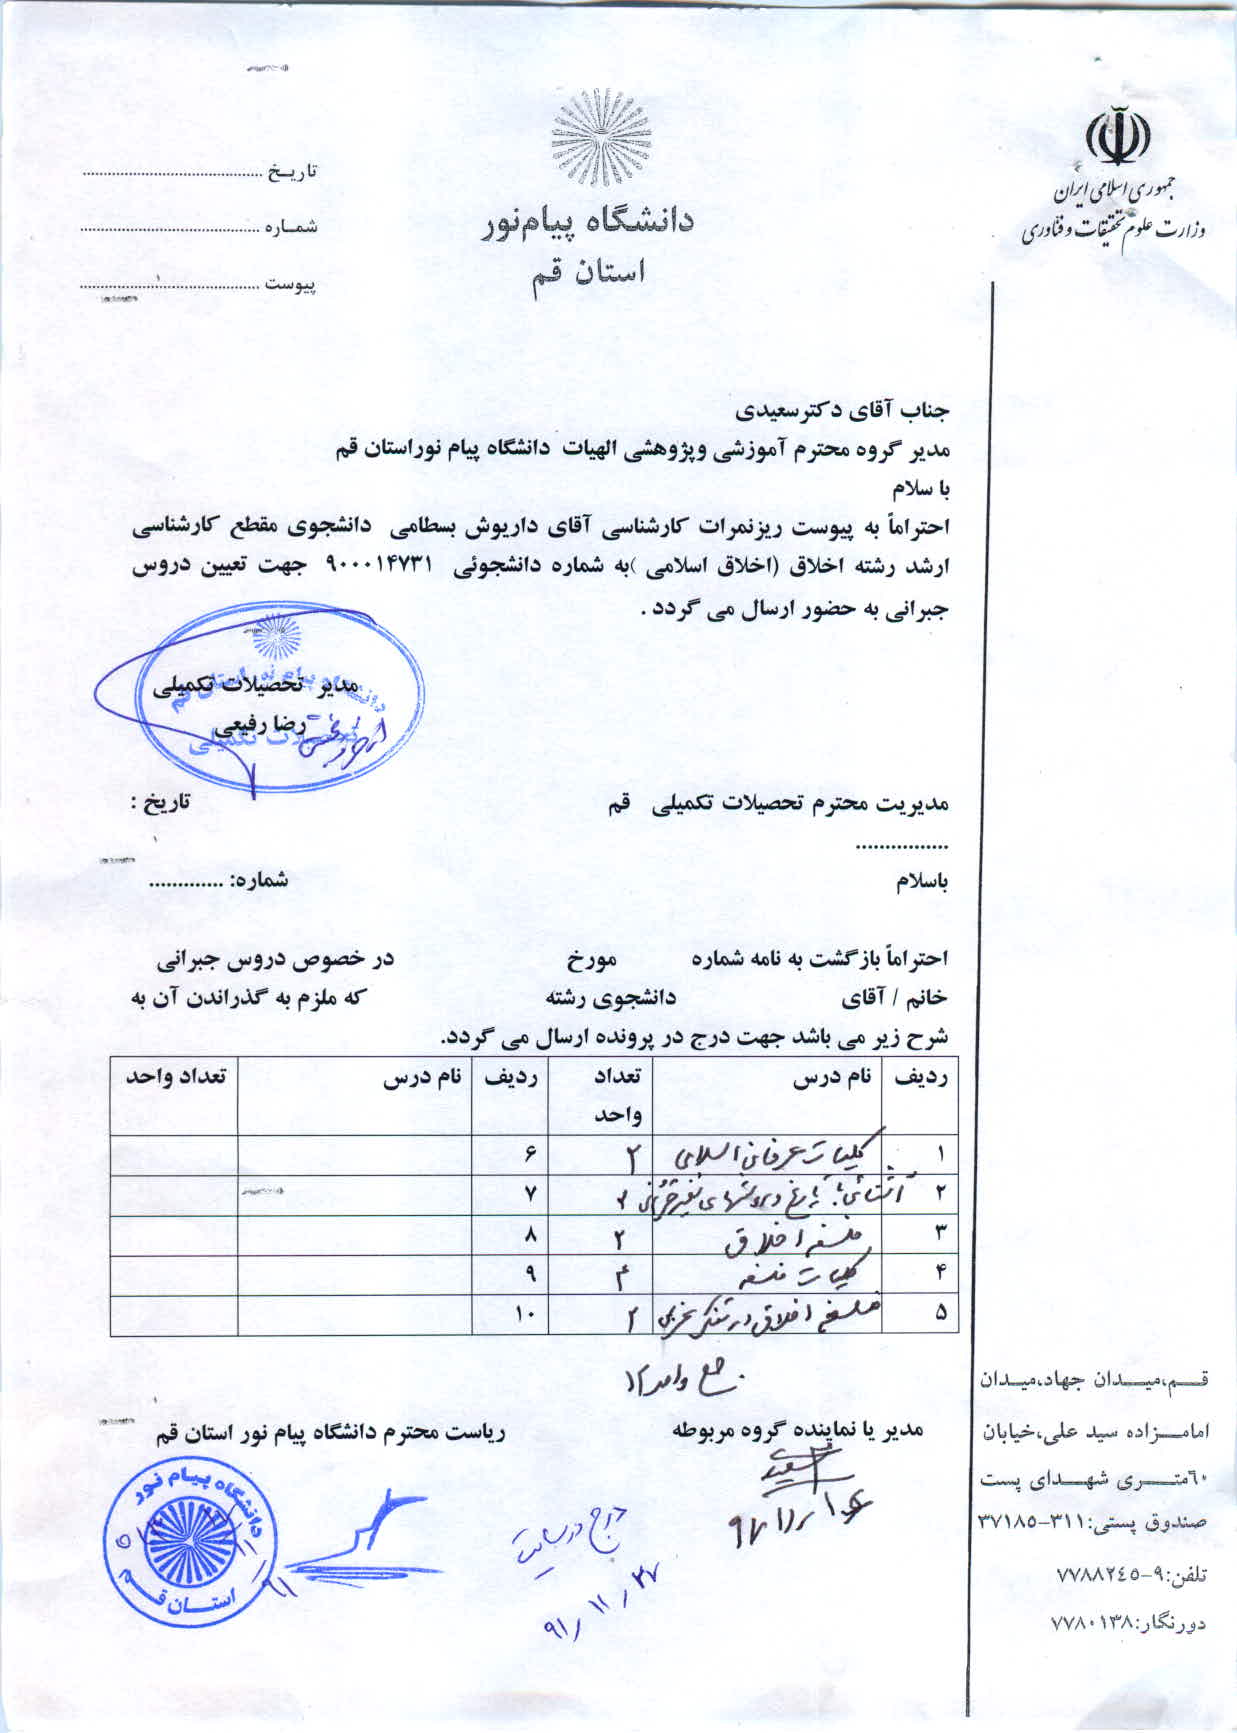 جمهوری اسلامی ایران
وزارت علوم تحقیقات و فناوری
دانشگاه پیام‌نور
استان قم
تاریخ ........................
شماره ........................
پیوست ........................
جناب آقای دکترسعیدی
مدیر گروه محترم آموزشی وپژوهشی الهیات دانشگاه پیام نوراستان قم
با سلام
احتراماً به پیوست ریزنمرات کارشناسی آقای داریوش بسطامی دانشجوی مقطع کارشناسی
ارشد رشته اخلاق (اخلاق اسلامی )به شماره دانشجوئی ۹۰۰۰۱۴۷۳۱ جهت تعیین دروس
جبرانی به حضور ارسال می گردد .
دانشگاه پیام نور استان قم
تحصیلات تکمیلی
مدیر تحصیلات تکمیلی
رضا رفیعی
مدیریت محترم تحصیلات تکمیلی قم تاریخ :
................
باسلام شماره: .............
احتراماً بازگشت به نامه شماره مورخ در خصوص دروس جبرانی
خانم / آقای دانشجوی رشته که ملزم به گذراندن آن به
شرح زیر می باشد جهت درج در پرونده ارسال می گردد.
ردیف نام درس تعداد واحد ردیف نام درس تعداد واحد
۱ کلیات عرفان اسلامی ۲ ۶
۲ آشنائی با تاریخ و روشهای ۲ ۷
۳ فلسفه اخلاق ۲ ۸
۴ کلیات فلسفه ۴ ۹
۵ فلسفه اخلاق در تفکر غربی ۲ ۱۰
جمع واحد ۱۲
مدیر یا نماینده گروه مربوطه ریاست محترم دانشگاه پیام نور استان قم
سعیدی
درج در سایت
۹۱/۱۱/
دانشگاه پیام نور
استان قم
قم،میدان جهاد،میدان
امامزاده سید علی،خیابان
٦٠متری شهدای پست
صندوق پستی:٣١١-٣٧١٨٥
تلفن:٩-٧٧٨٨٢٤٥
دورنگار:٧٧٨٠١٣٨